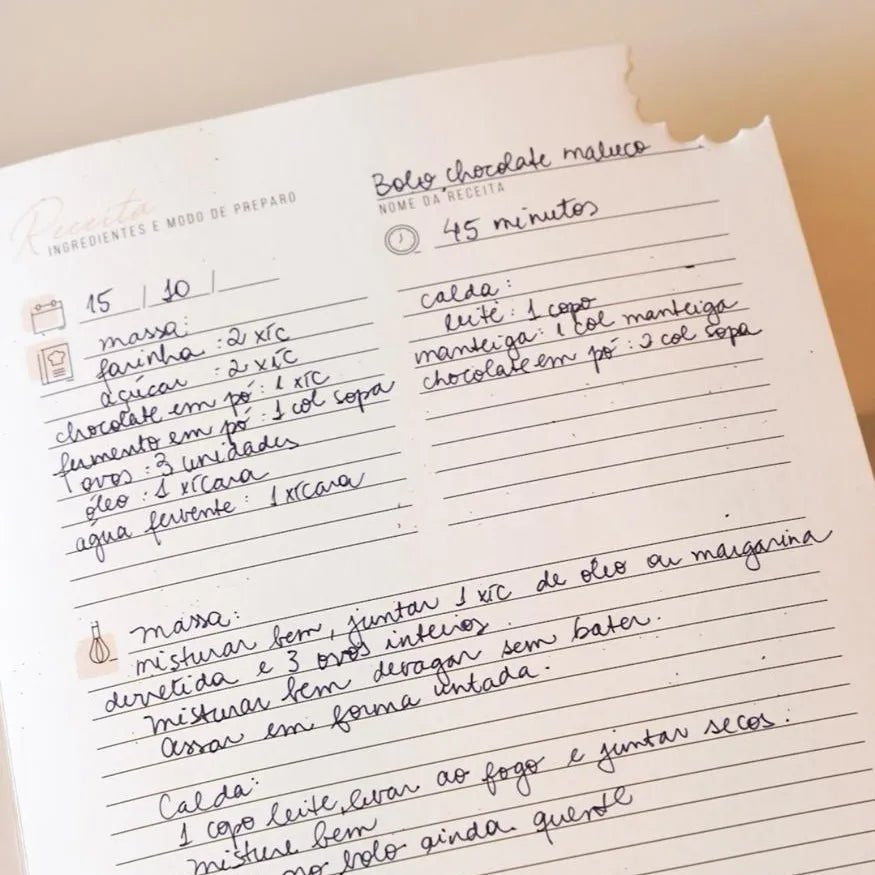 Receita
INGREDIENTES E MODO DE PREPARO
Bolo chocolate maluco
NOME DA RECEITA
45 minutos
15 | 10 |
massa:
farinha : 2 xíc
açúcar : 2 xíc
chocolate em pó : 1 xíc
fermento em pó : 1 col sopa
ovos : 3 unidades
óleo : 1 xícara
água fervente : 1 xícara
calda :
leite : 1 copo
manteiga : 1 col manteiga
chocolate em pó : 2 col sopa
massa:
misturar bem, juntar 1 xíc de óleo ou margarina
derretida e 3 ovos inteiros.
misturar bem devagar sem bater.
assar em forma untada.
Calda:
1 copo leite, levar ao fogo e juntar secos.
misture bem
no bolo ainda quente